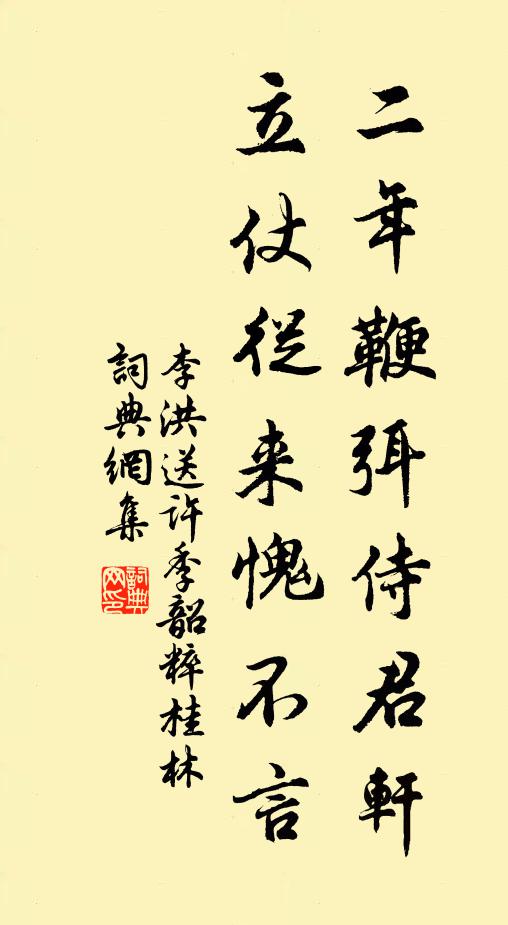 二年鞭弭侍君軒
立仗從来愧不言
李洪送许季韶粹桂林
詞典網集
詞典網印